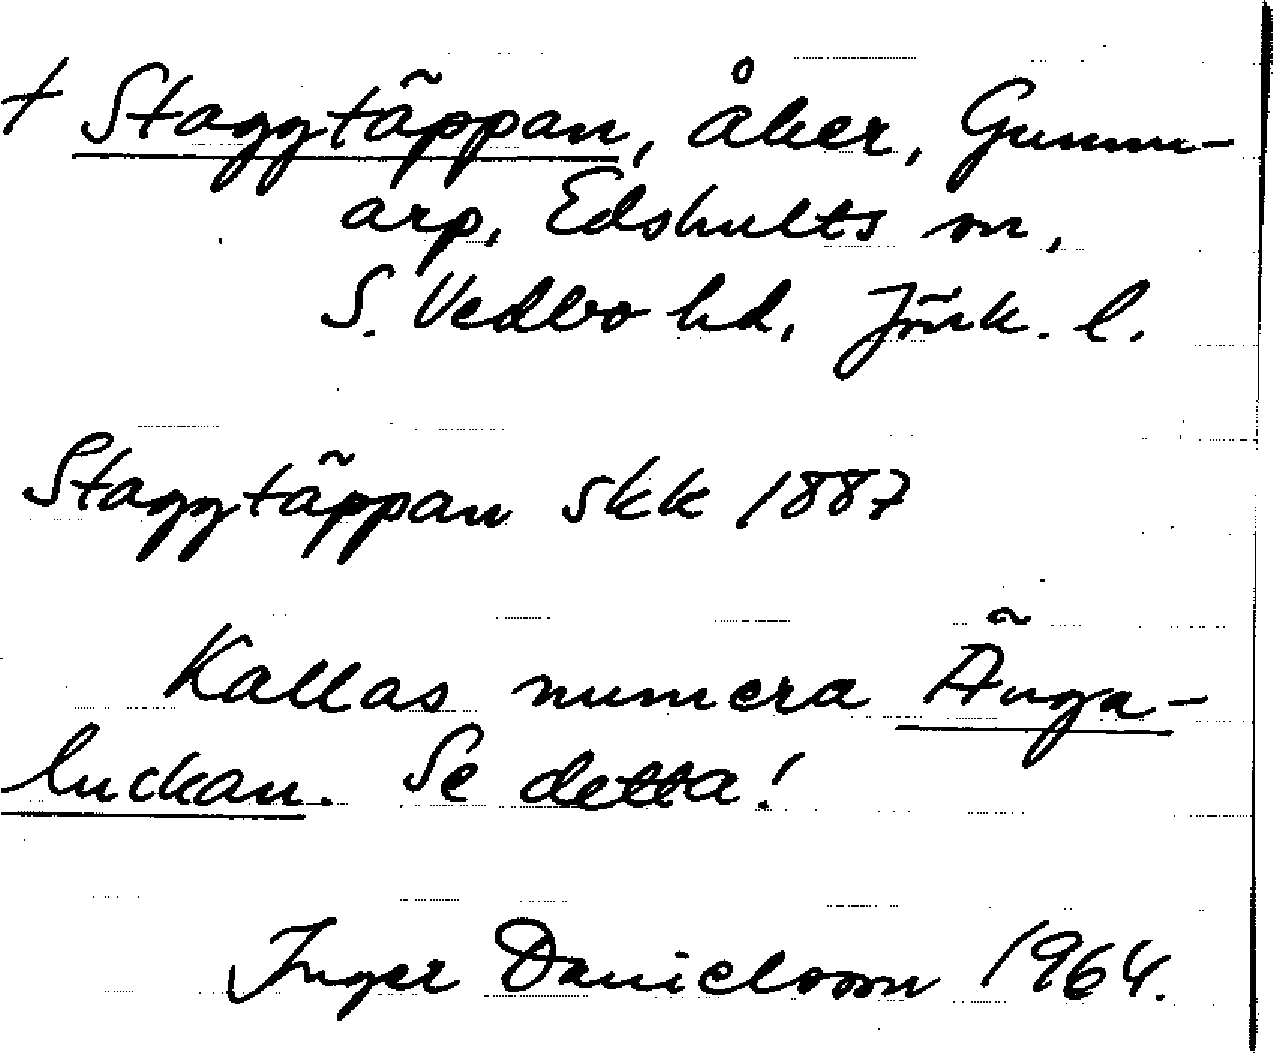 † Staggtäppan, åker, Gunn-
arp, Edshults sn,
S. Vedbo hd, Jönk. l.
Staggtäppan skk 1887
Kallas numera Änga-
luckan. Se detta!
Inger Danielsson 1964.